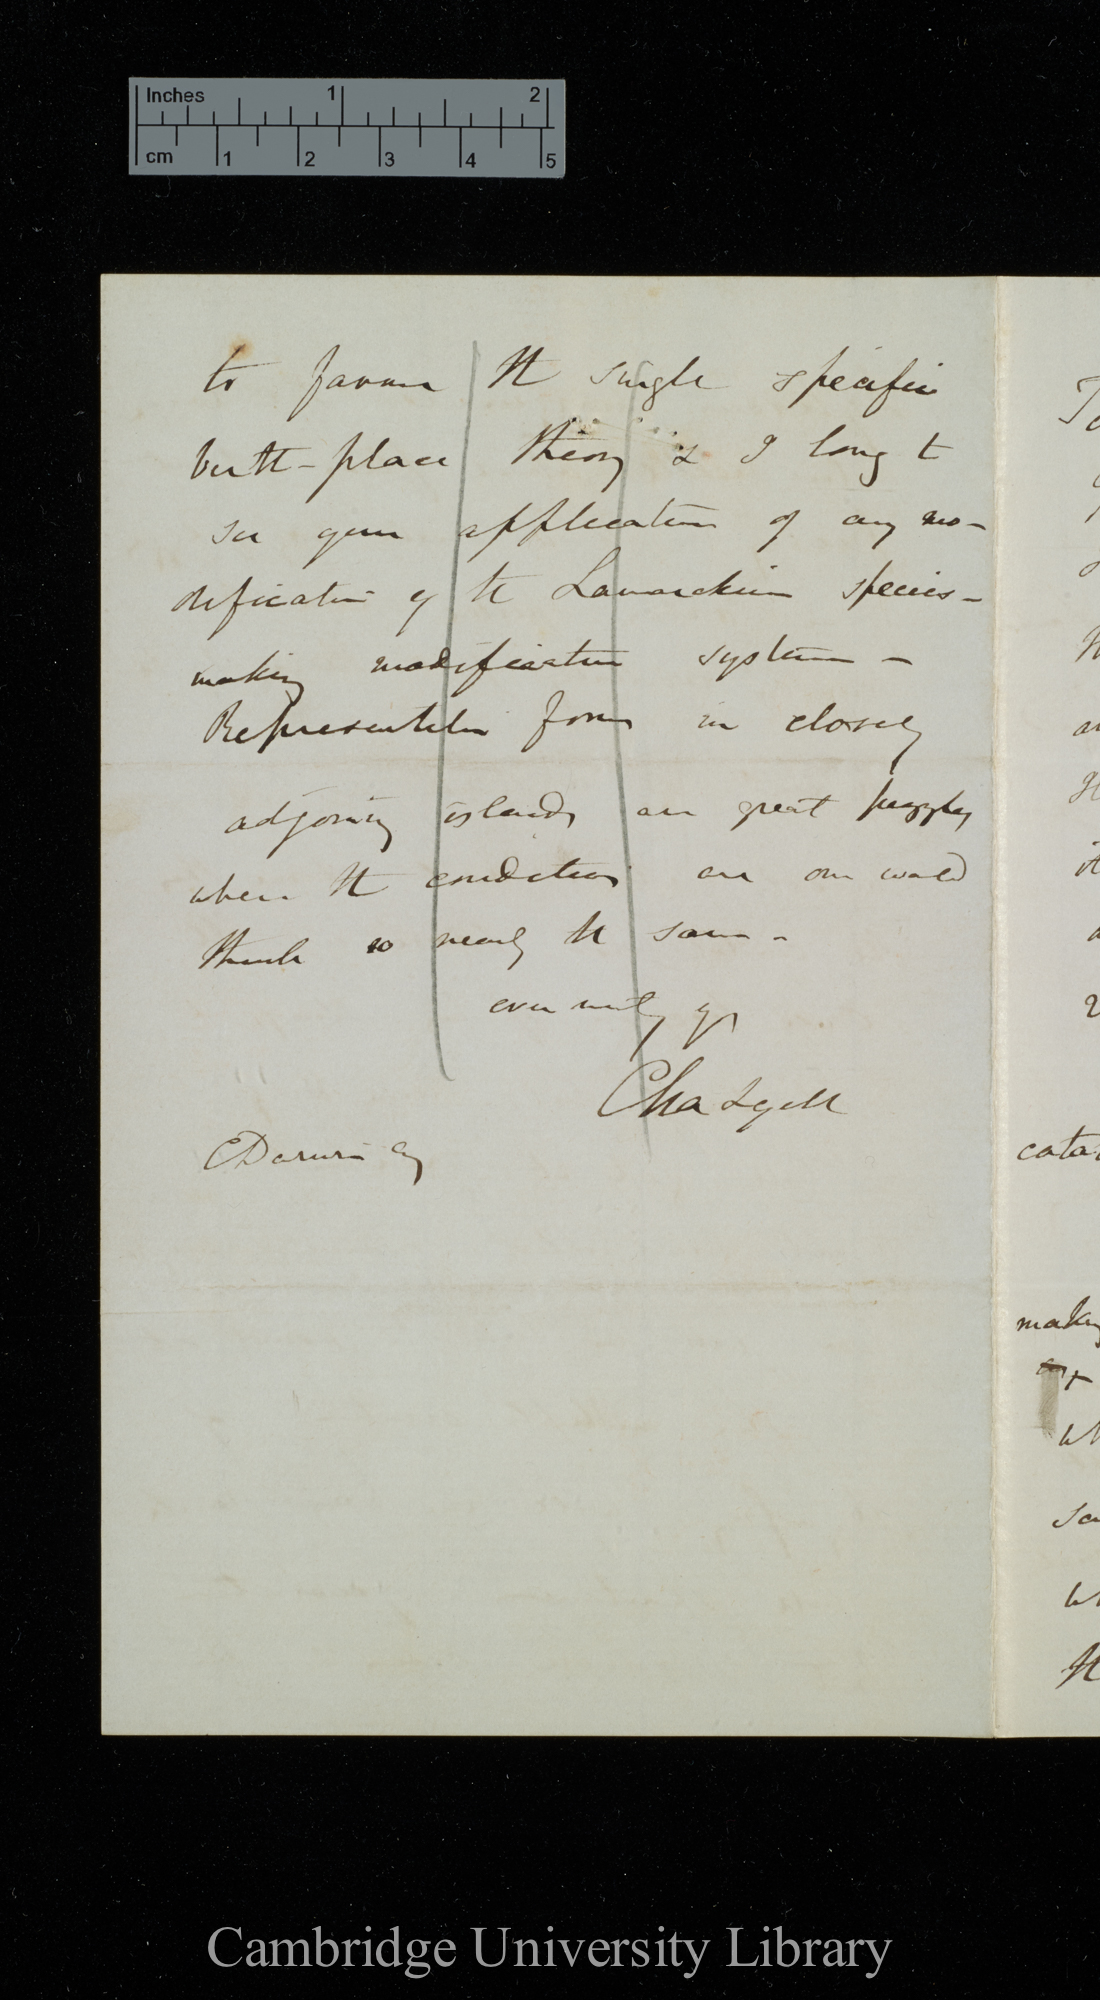 Inches 1 2
cm 1 2 3 4 5
to favour the single specific
birth-place theory & I long to
see your application of any mo-
dification of the Lamarckian species-
making modification system—
Representative forms in closely
adjoining islands are great puzzles
where the conditions are one would
think so nearly the same—
ever most truly yrs
Cha Lyell
C Darwin Esq
cata
making
wh
Cambridge University Library